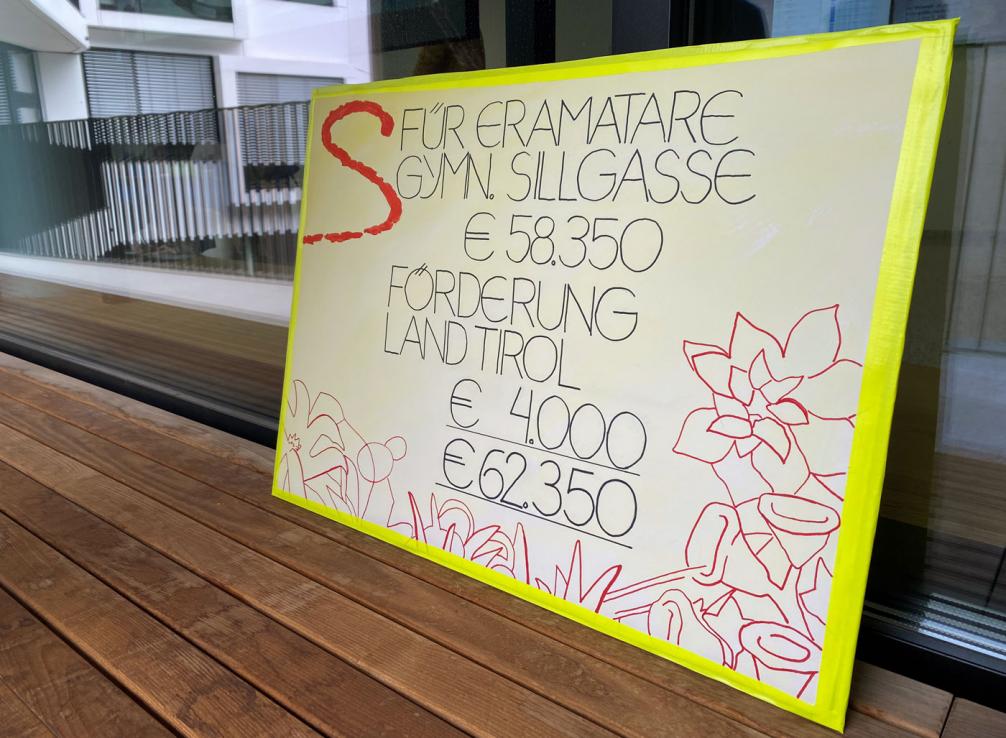 S FÜR ERAMATARE
GYMN. SILLGASSE
€ 58.350
FÖRDERUNG
LAND TIROL
€ 4.000
€ 62.350